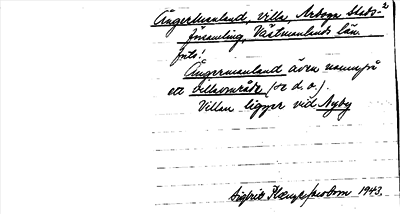 Ångermanland, villa, Arboga stads-2
församling, Västmanlands län.
Ångermanland även namn på
ett villaområde (se d. o.).
Villan ligger vid Nyby
Sigfrid 1943.